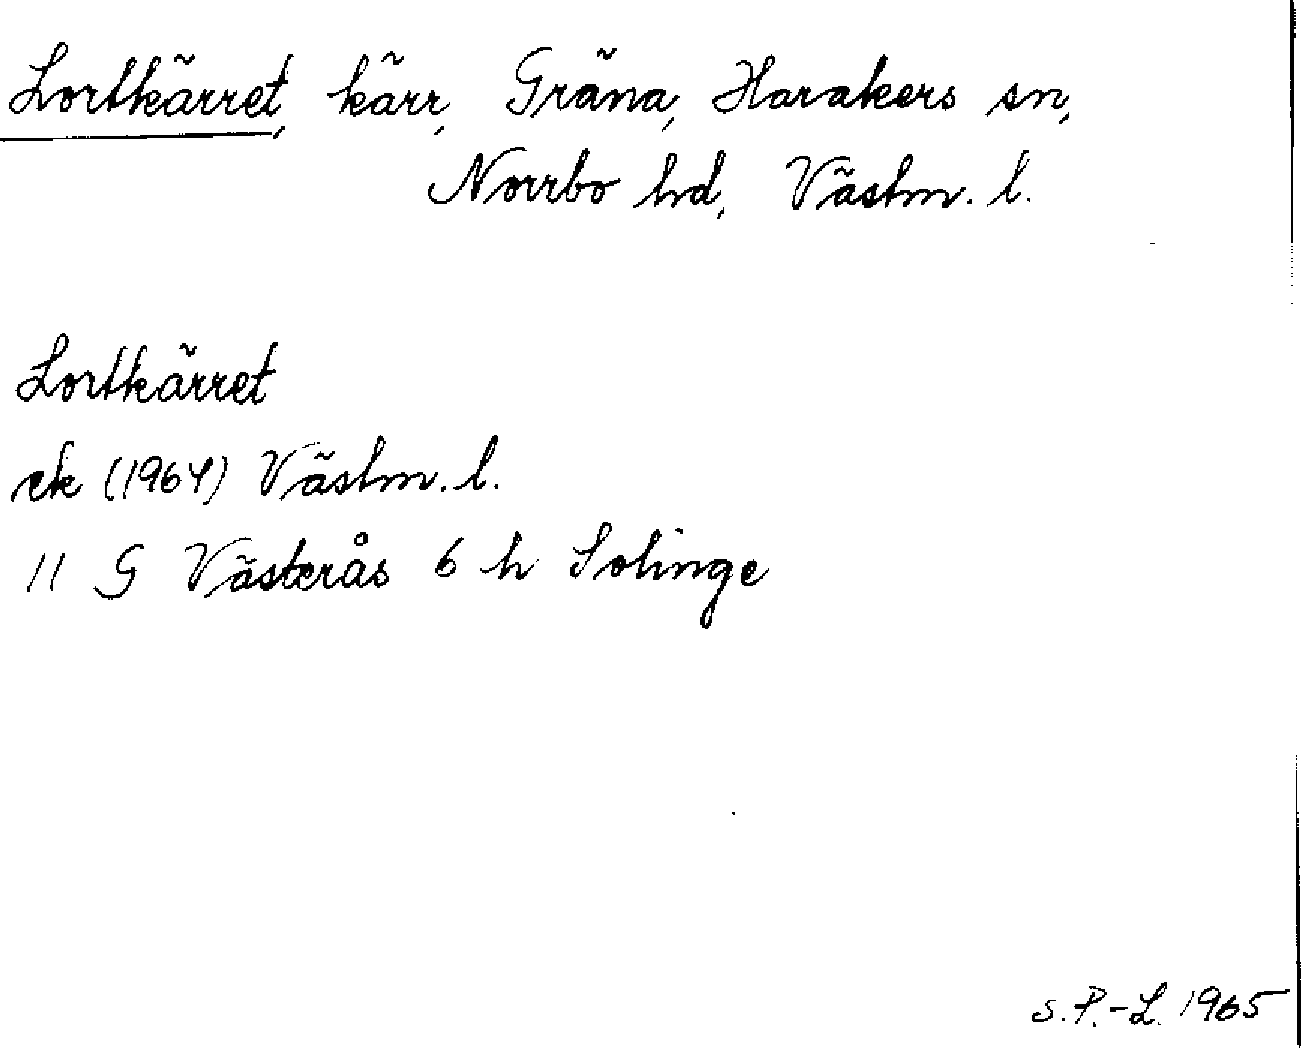 Lortkärret, kärr, Gräna, Harakers sn,
Norrbo hd, Västm. l.
Lortkärret
ek (1964) Västm. l.
11 G Västerås 6 h Solinge
S. P.-L. 1965